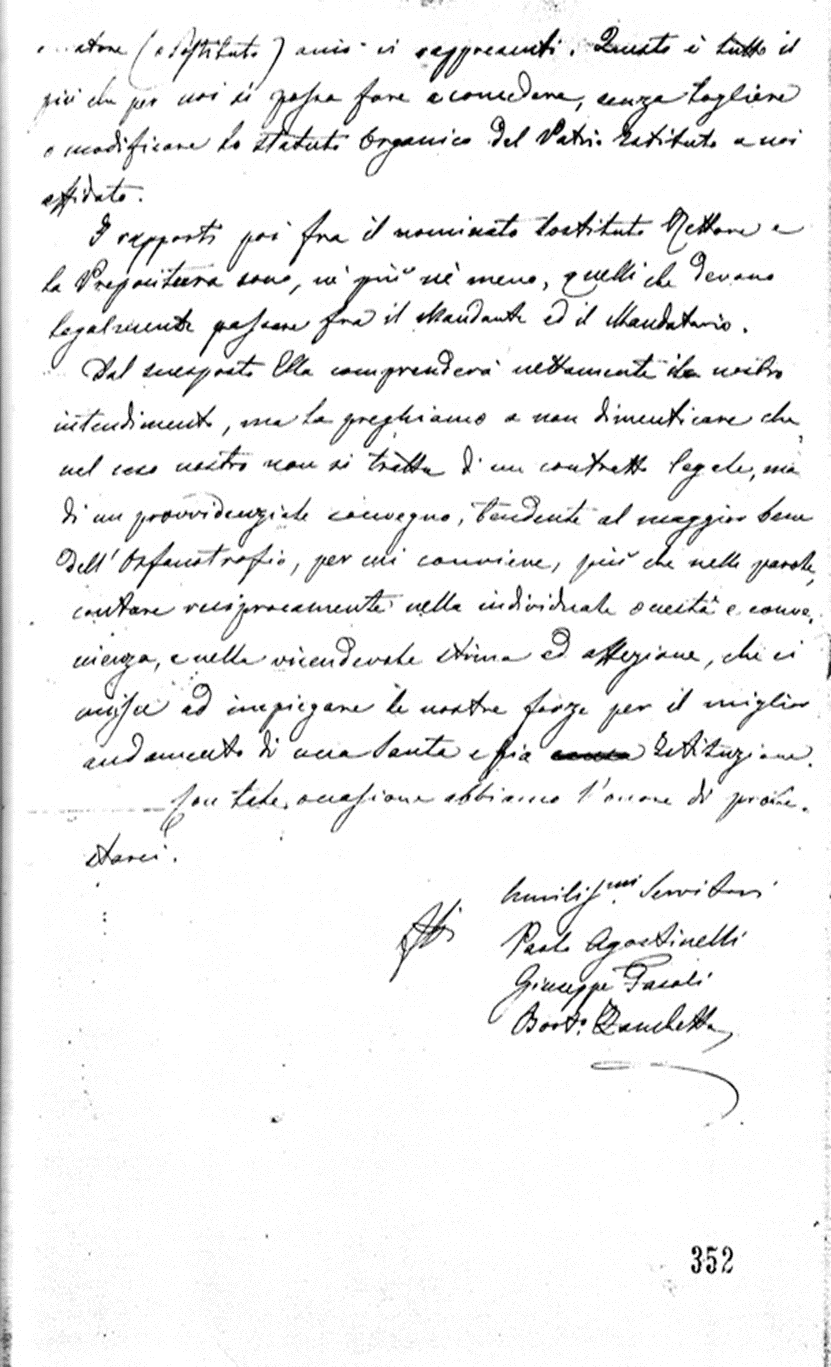 (o Sostituto) anzi ci rappresenti. Questo è tutto il
più che per noi si possa fare e concedere, senza togliere
o modificare lo Statuto Organico del Patrio Istituto a noi
affidato.
I rapporti poi fra il nominato Sostituto Rettore e
la Prepositura sono, nè più nè meno, quelli che devono
legalmente passare fra il Mandante ed il Mandatario.
Dal suesposto Ella comprenderà nettamente il nostro
intendimento, ma La preghiamo a non dimenticare che,
nel caso nostro non si tratta di un contratto legale, ma
di un provvidenziale convegno, tendente al maggior bene
dell'Orfanotrofio, per cui conviene, più che nelle parole,
contare reciprocamente nella individuale onestà e conve-
nienza, e nella vicendevole stima ed affezione, che ci
unisce ad impiegare le nostre forze per il miglior
andamento di una Santa e pia Istituzione.
Con tale occasione abbiamo l'onore di prote-
starci.
Umilissmi Servitori
Paolo Agostinelli
Giuseppe Pasoli
Borto. Zanchetta
352